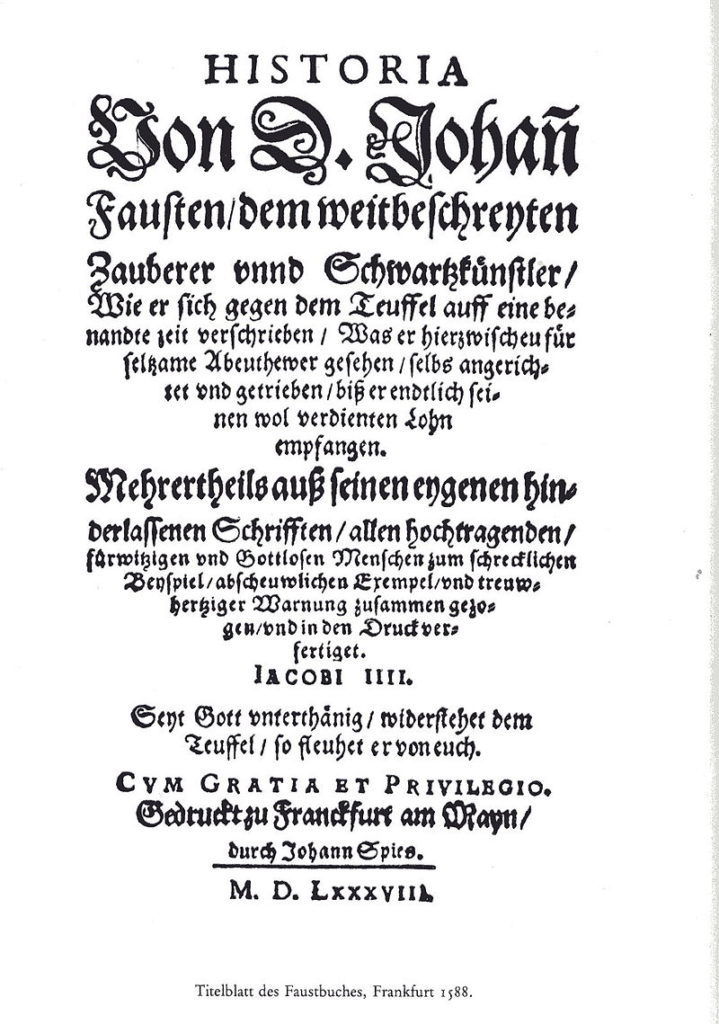 HISTORIA
Von D. Johañ
Fausten/dem weitbeschreyten
Zauberer vnnd Schwartzkünstler/
Wie er sich gegen dem Teuffel auff eine be-
nandte zeit verschrieben/ Was er hierzwischen für
seltzame Abenthewer gesehen/selbs angerich-
tet vnd getrieben/biß er endtlich sei-
nen wol verdienten Lohn
empfangen.
Mehrertheils auß seinen eygenen hin-
derlassenen Schrifften/allen hochtragenden/
fürwitzigen vnd Gottlosen Menschen zum schrecklichen
Beyspiel/abscheuwlichen Exempel/vnd treuw-
hertziger Warnung zusammen gezo-
gen/vnd in den Druck ver-
fertiget.
IACOBI IIII.
Seyt Gott vnterthänig/ widerstehet dem
Teuffel/ so fleuhet er von euch.
CVM GRATIA ET PRIVILEGIO.
Gedruckt zu Franckfurt am Mayn/
durch Johann Spies.
M. D. LXXXVIII.
Titelblatt des Faustbuches, Frankfurt 1588.